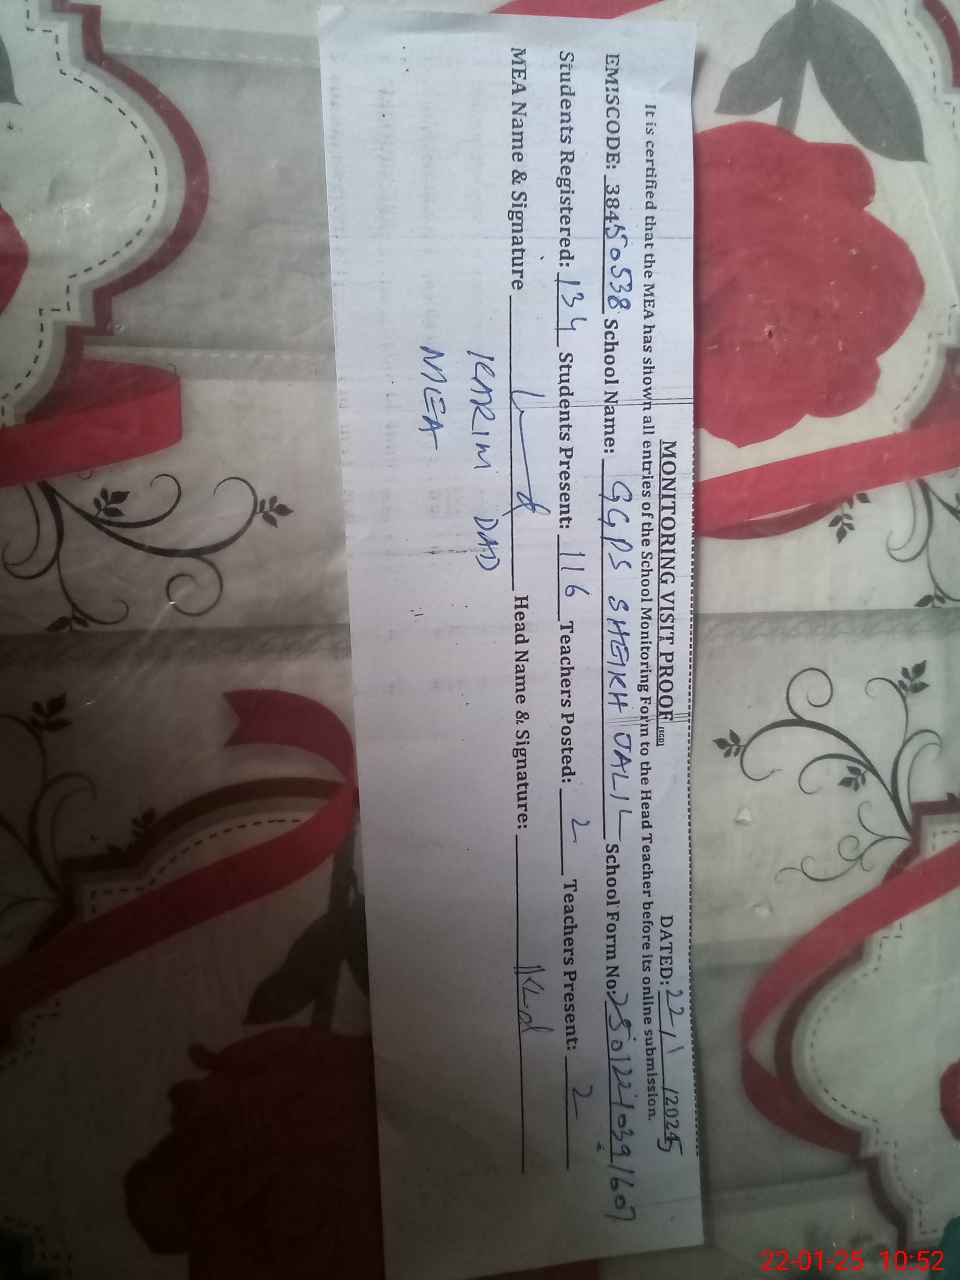 MONITORING VISIT PROOF DATED: 22/1/2025
It is certified that the MEA has shown all entries of the School Monitoring Form to the Head Teacher before its online submission.
EMISCODE: 38450538 School Name: GGPS SHEIKH JALIL School Form No:
Students Registered: 134 Students Present: 116 Teachers Posted: 2 Teachers Present: 2
MEA Name & Signature Head Name & Signature:
KARIM DAD
MEA
22-01-25 10:52